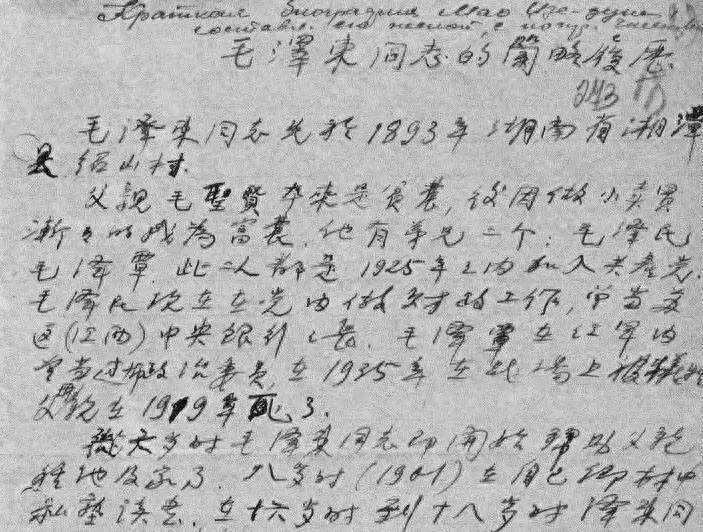 Краткая биография Мао Цзе-дуна
составле. его женой, с
毛澤東同志的簡略履歷.
243
毛澤東同志先於1893年湖南省湘潭
县紹山村.
父親毛聖賢本來是貧農, 後因做小卖買
漸々的成為富農. 他有弟兄二个: 毛泽民
毛澤覃. 此二人都是1925年之内加入共產党.
毛泽民现在在党内做财政工作, 曾当苏
区(江西)中央銀行之長. 毛澤覃在红軍内
曾当过政治委員, 在1935年在战場上犧牲
父親在1919年死了.
六岁时毛泽東同志即開始幫助父親
種地及家了. 八岁时(1901)在自己鄉村中
私塾读書. 在十六岁时到十八岁时澤東同